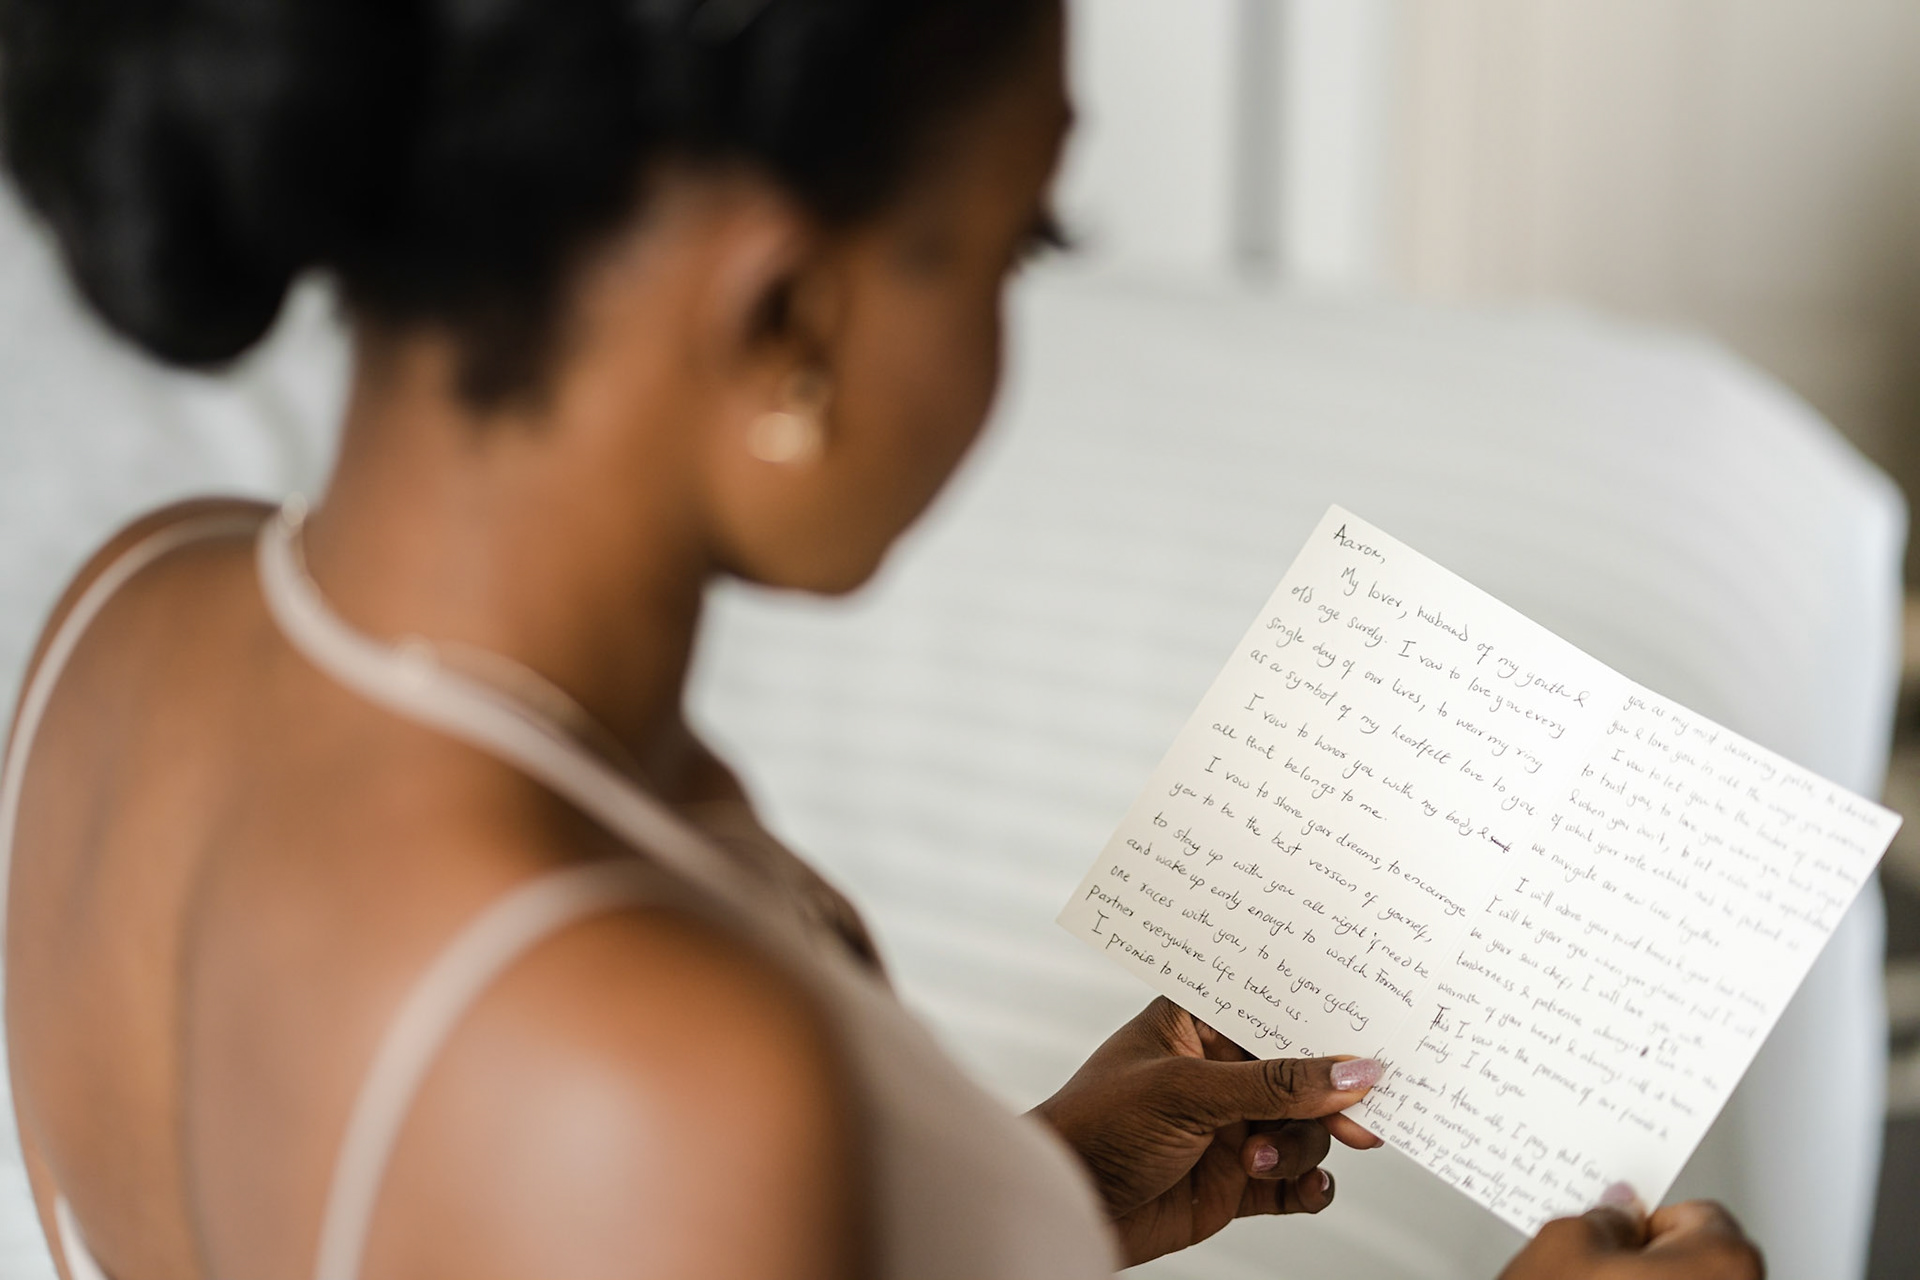 Aaron,
My lover, husband of my youth &
old age surely. I vow to love you every
single day of our lives, to wear my ring
as a symbol of my heartfelt love to you.
I vow to honor you with my body &
all that belongs to me.
I vow to share your dreams, to encourage
you to be the best version of yourself,
to stay up with you all night if need be
and wake up early enough to watch Formula
one races with you, to be your cycling
partner everywhere life takes us.
I promise to wake up everyday an
you as my most deserving prize, to cherish
you & love you in all the ways you
I vow to let you be the leader of our home
to trust you, to love you when you
& when you don't, to set aside all expectations
of what your role entails and be patient as
we navigate our new lives together.
I will adore your
I will be your eyes when your glasses I will
be your sous chef, I will love you with
tenderness & patience always. I'll
warmth of your heart & always call it home.
This I vow in the presence of our friends &
family. I love you
Above all, I pray that God
of our marriage and that
and help us continually
one another. I pray He helps us